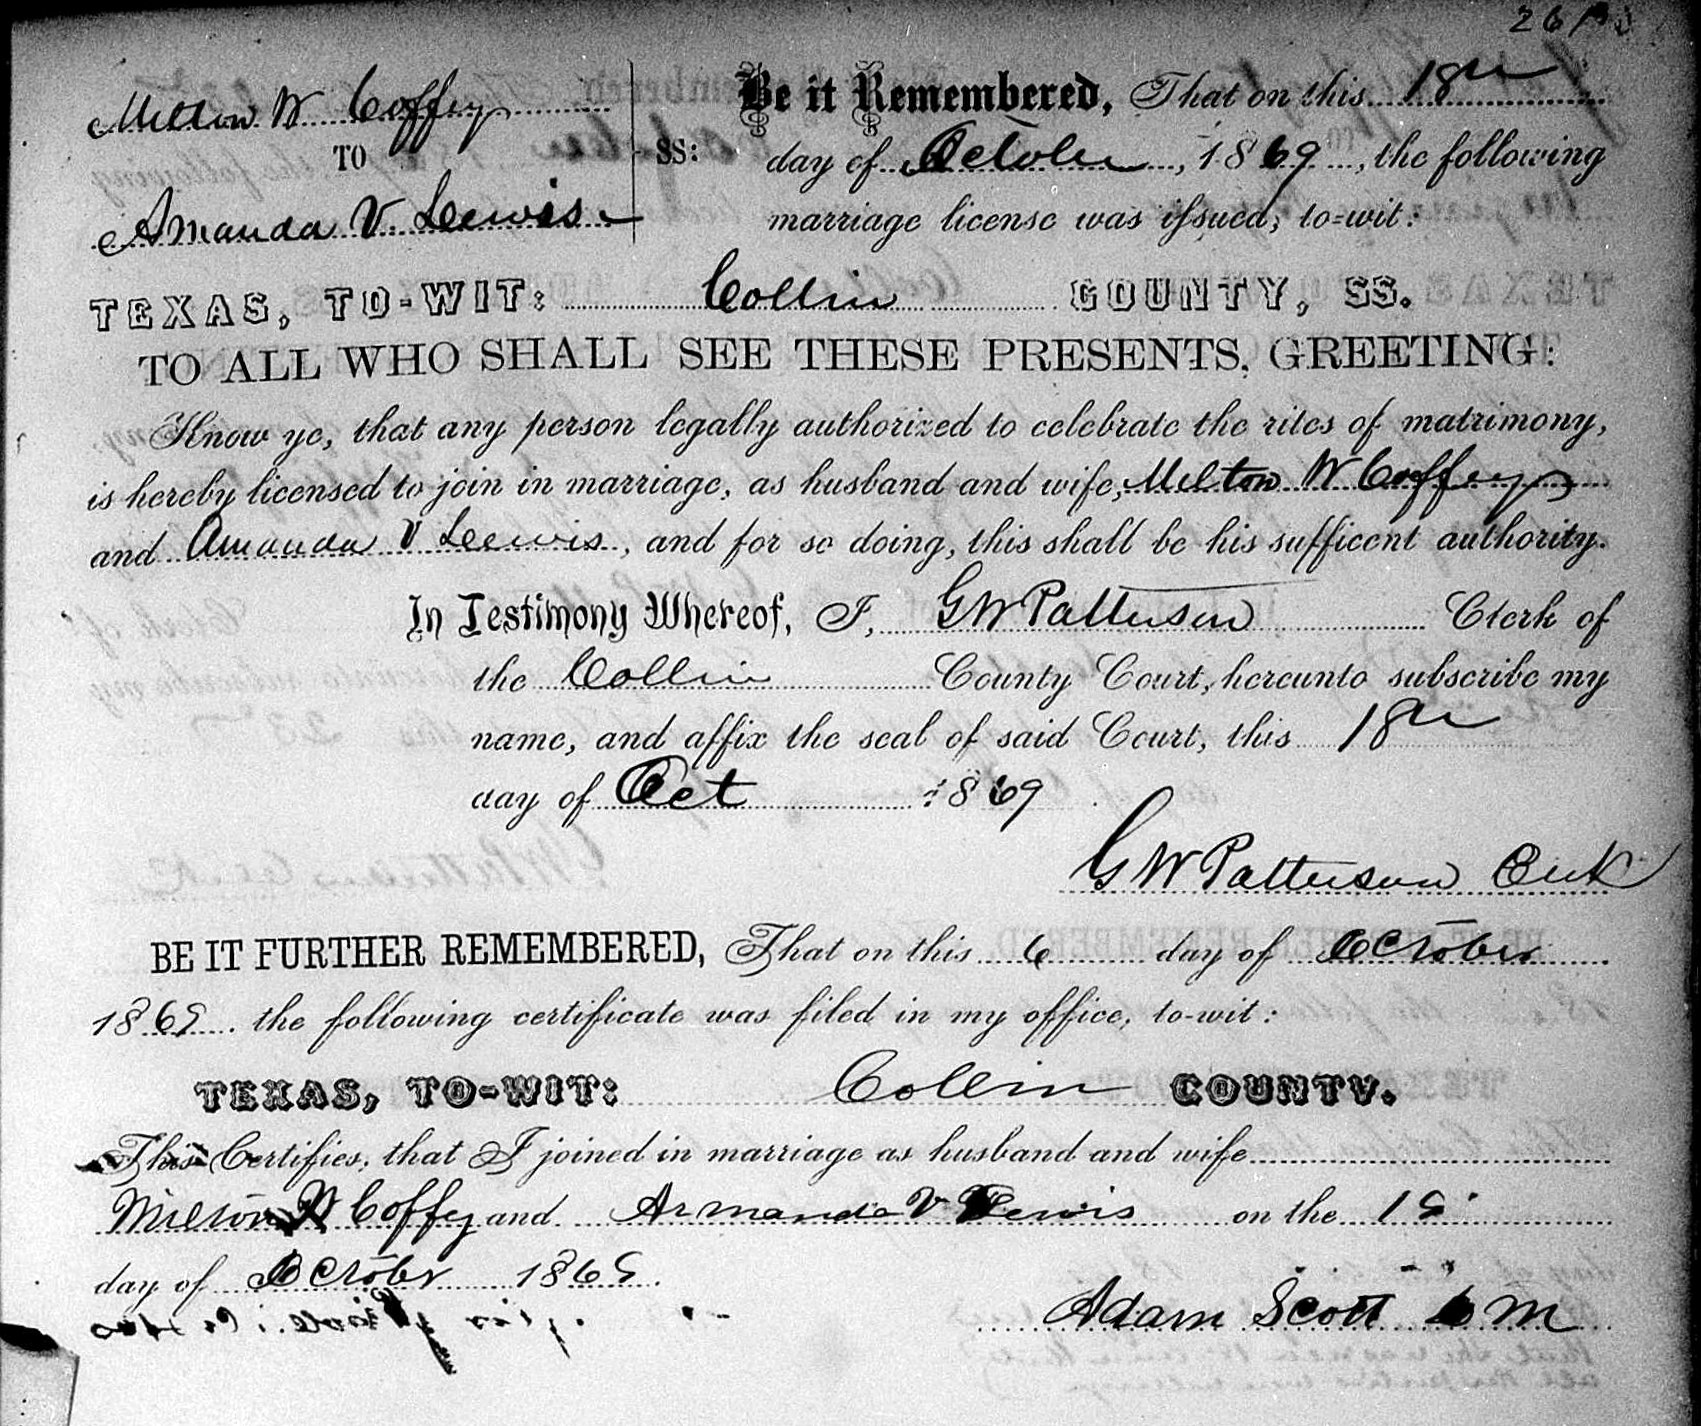 Melton W Coffey
TO
Amanda V. Lewis
SS:
Be it Remembered, That on this 18th
day of October, 1869, the following
marriage license was issued, to-wit:
TEXAS, TO-WIT: Collin COUNTY, SS.
TO ALL WHO SHALL SEE THESE PRESENTS, GREETING:
Know ye, that any person legally authorized to celebrate the rites of matrimony,
is hereby licensed to join in marriage, as husband and wife, Melton W Coffey
and Amanda V Lewis, and for so doing, this shall be his sufficent authority.
In Testimony Whereof, I, G W Patterson Clerk of
the Collin County Court, hereunto subscribe my
name, and affix the seal of said Court, this 18th
day of Oct 1869
G W Patterson Clerk
BE IT FURTHER REMEMBERED, That on this 6 day of October
1869. the following certificate was filed in my office, to-wit:
TEXAS, TO-WIT: Collin COUNTY.
This Certifies, that I joined in marriage as husband and wife
Milton W Coffey and Armanda V Lewis on the 19
day of Octobr 1869.
Adam Scott M